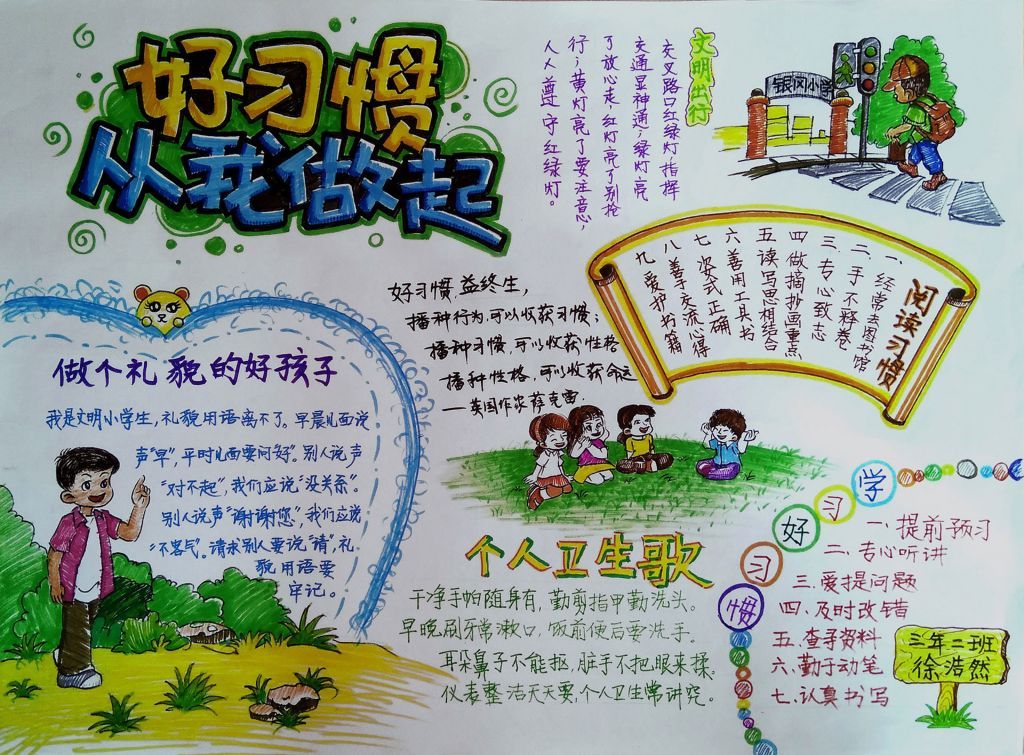 好习惯
从我做起
文明出行
交叉路口红绿灯指挥
交通显神通；绿灯亮
了放心走，红灯亮了别抢
行；黄灯亮了要注意，
人人遵守红绿灯。
银冈小学
阅读习惯
一、经常去图书馆
二、手不释卷
三、专心致志
四做摘抄画重点
五读写思相结合
六善用工具书
七姿式正确
八善于交流心得
九爱护书籍
好习惯，益终生，
播种行为，可以收获习惯；
播种习惯，可以收获性格
播种性格，可以收获命运
—英国作家萨克雷
做个礼貌的好孩子
我是文明小学生，礼貌用语离不了。早晨见面说
声“早”，平时见面要问“好”。别人说声
“对不起”，我们应说“没关系”。
别人说声“谢谢您”，我们应说
“不客气”。请求别人要说“请”，礼
貌用语要
牢记。
个人卫生歌
干净手帕随身有，勤剪指甲勤洗头。
早晚刷牙常漱口，饭前便后要洗手。
耳朵鼻子不能抠，脏手不把眼来揉。
仪表整洁天天要，个人卫生常讲究。
学习好习惯
一、提前预习
二、专心听讲
三、爱提问题
四、及时改错
五、查子资料
六、勤于动笔
七、认真书写
三年二班
徐浩然